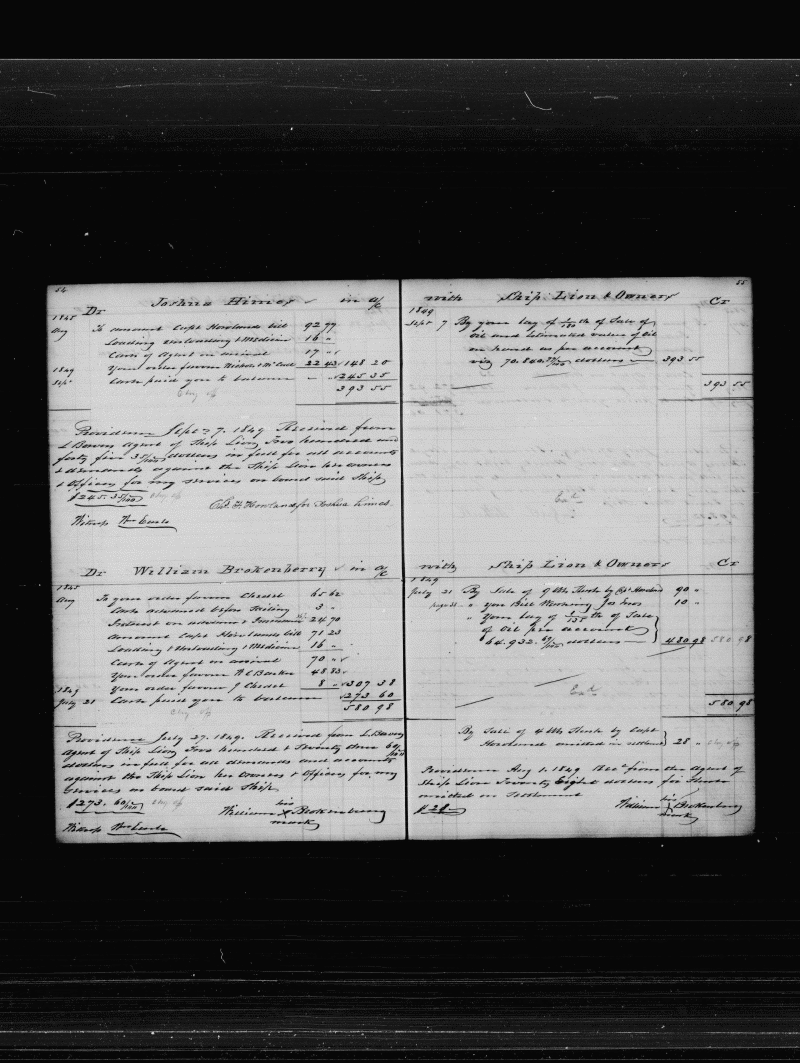 54
Dr Joshua Himes in a/c
1845
Aug To amount Capt Howlands bill 92 97
Loading unloading & Medicine 16 "
Cash of Agent on arrival 17 "
1849 Your order favour 22 43 148 20
Sept Cash paid you to balance 245 35
393 55
Providence Sept 7. 1849 Received from
L Bowen Agent of Ship Lion Two hundred and
forty five 35/100 dollars in full for all accounts
& demands against the Ship Lion her owners
& Officers for my services on board said Ship
$245.35/100
Howland for Joshua Himes
Witness
Dr William Brokenberry in a/c
1845
Aug To your order favour Chedel 65 62
Cash advanced before Sailing 3 "
Interest on advance & Insurance 24 70
Amount Capt Howlands bill 71 23
Loading & Unloading & Medicine 16 "
Cash of Agent on arrival 70 "
Your order favour 48 83
1849 Your order favour J Chedel 8 " 307 38
July 21 Cash paid you to balance 273 60
580 98
Providence July 27. 1849. Received from L. Bowen
Agent of Ship Lion Two hundred & Seventy three 60/100
dollars in full for all demands and accounts
against the Ship Lion her Owners & Officers for my
Services on board said Ship
$273. 60/100
William his X mark Brokenberry
Witness
55
with Ship Lion & Owners Cr
1849
Sept 7 By your lay of 1/180 th of Sale of
Oil and estimated value of Oil
on hand as per account
viz 70.840. /100 dollars 393 55
393 55
Ex
with Ship Lion & Owners Cr
1849
July 21 By Sale of 9 by Capt Howland 90 "
" your Bill Working 10 "
" Your lay of 1/135 th of Sale
of Oil per account
64.932. /100 dollars 480 98 580 98
Ex
580 98
By Sale of 4 by Capt
Howland omitted in 28 "
Providence Aug 1. 1849 Recd from the Agent of
Ship Lion Twenty Eight dollars for
omitted in Settlement
$28
William his X mark Brokenberry